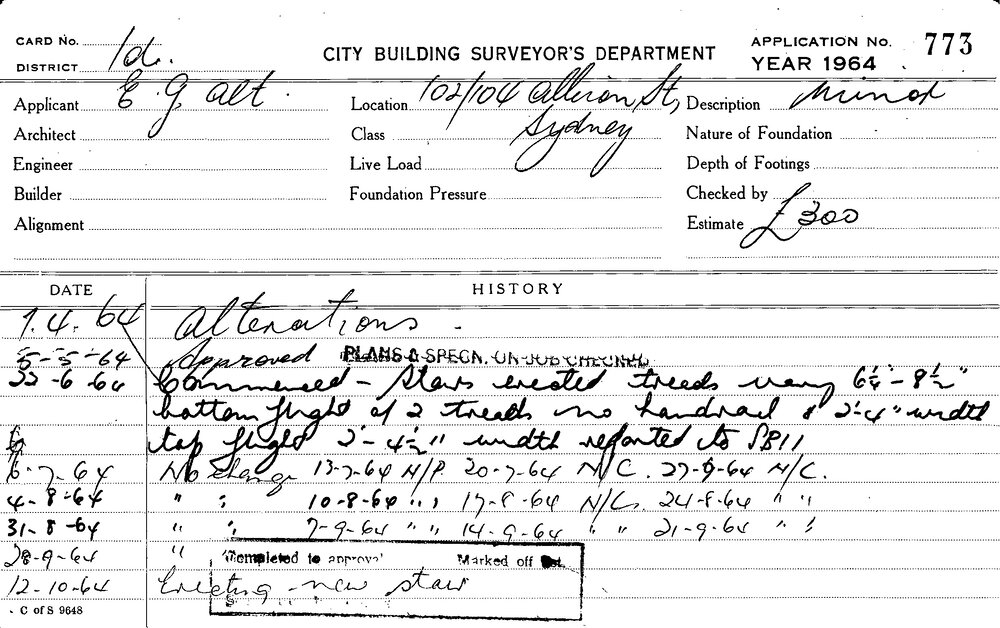 CARD No. 1d.
DISTRICT
CITY BUILDING SURVEYOR'S DEPARTMENT
APPLICATION No. 773
YEAR 1964
Applicant E G Alt. Location 102/104 Albion St, Sydney Description Minor
Architect Class Nature of Foundation
Engineer Live Load Depth of Footings
Builder Foundation Pressure Checked by
Alignment Estimate £300
DATE HISTORY
7.4.64 Alterations.
5-5-64 Approved PLANS & SPECN. ON JOB CHECKED
22-6-64 Commenced - Stairs erected treads vary 6¼" - 8½"
bottom flight of 2 treads no handrail & 2'-4" width
top flight 2'-4½" width reported to SB11
6-7-64 No change 13-7-64 N/P. 20-7-64 N/C. 27-7-64 N/C.
4-8-64 " " 10-8-64 " " 17-8-64 N/C. 24-8-64 " "
31-8-64 " " 7-9-64 " " 14-9-64 " " 21-9-64 " "
28-9-64 "
Completed to approval Marked off
12-10-64 Erecting new stair
C of S 9648